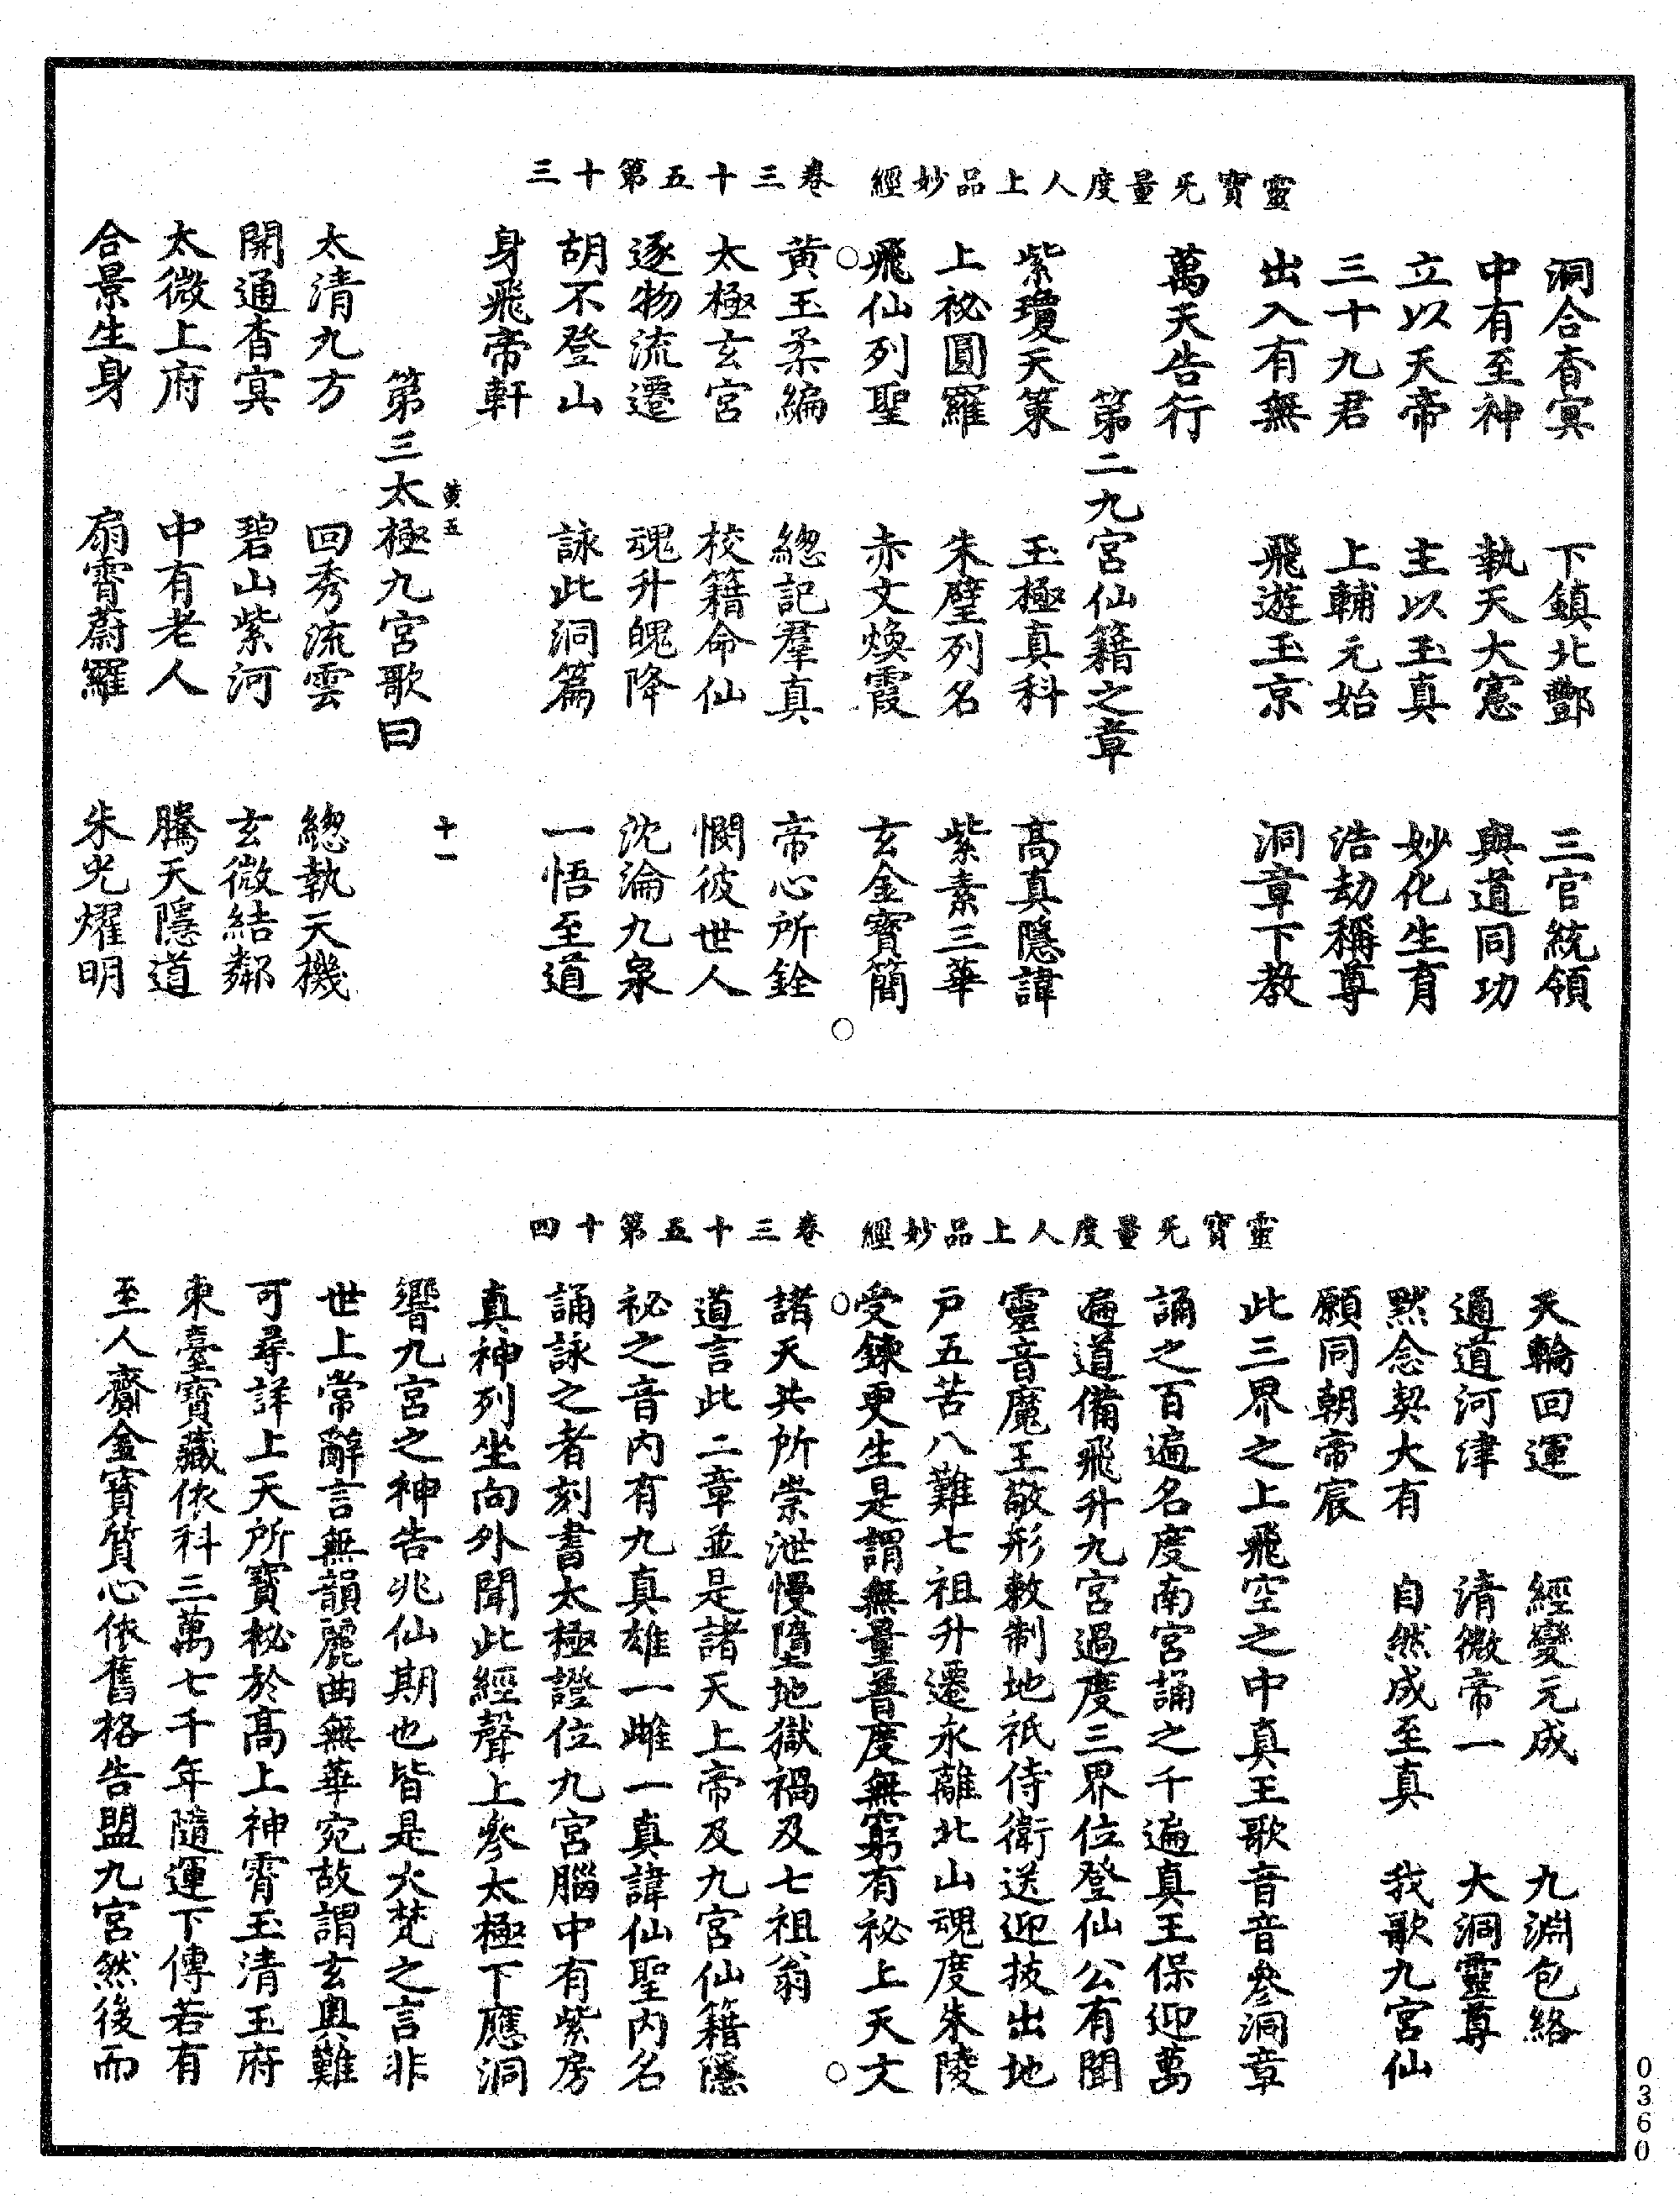 靈寶无量度人上品妙經　卷三十五第十三
洞合杳冥　下鎮北酆　三官統領
中有至神　執天大憲　與道同功
立以天帝　主以玉真　妙化生育
三十九君　上輔元始　浩劫稱尊
出入有無　飛遊玉京　洞章下教
萬天告行
第二九宮仙籍之章
紫瓊天策　玉極真科　高真隱諱
上祕圓羅　朱璧列名　紫素三華
飛仙列聖　赤文煥霞　玄金寶簡
黃玉柔編　總記羣真　帝心所銓
太極玄宮　校籍命仙　憫彼世人
逐物流遷　魂升魄降　沈淪九泉
胡不登山　詠此洞篇　一悟至道
身飛帝軒
黃五　十一
第三太極九宮歌曰
太清九方　回秀流雲　總執天機
開通杳冥　碧山紫河　玄微結鄰
太微上府　中有老人　騰天隱道
合景生身　扇霄蔚羅　朱光燿明
靈寶无量度人上品妙經　卷三十五第十四
天輪回運　經變元成　九淵包絡
通道河津　清微帝一　大洞靈尊
默念契大有　自然成至真　我歌九宮仙
願同朝帝宸
此三界之上飛空之中真王歌音音參洞章
誦之百遍名度南宮誦之千遍真王保迎萬
遍道備飛升九宮過度三界位登仙公有聞
靈音魔王敬形敕制地祇侍衛送迎拔出地
戶五苦八難七祖升遷永離北山魂度朱陵
受鍊更生是謂無量普度無窮有祕上天文
諸天共所崇泄慢墮地獄禍及七祖翁
道言此二章並是諸天上帝及九宮仙籍隱
祕之音內有九真雄一雌一真諱仙聖內名
誦詠之者刻書太極證位九宮腦中有紫房
真神列坐向外聞此經聲上參太極下應洞
響九宮之神告兆仙期也皆是火梵之言非
世上常辭言無韻麗曲無華宛故謂玄奧難
可尋詳上天所寶秘於高上神霄玉清玉府
東臺寶藏依科三萬七千年隨運下傳若有
至人齎金寶質心依舊格告盟九宮然後而
0360